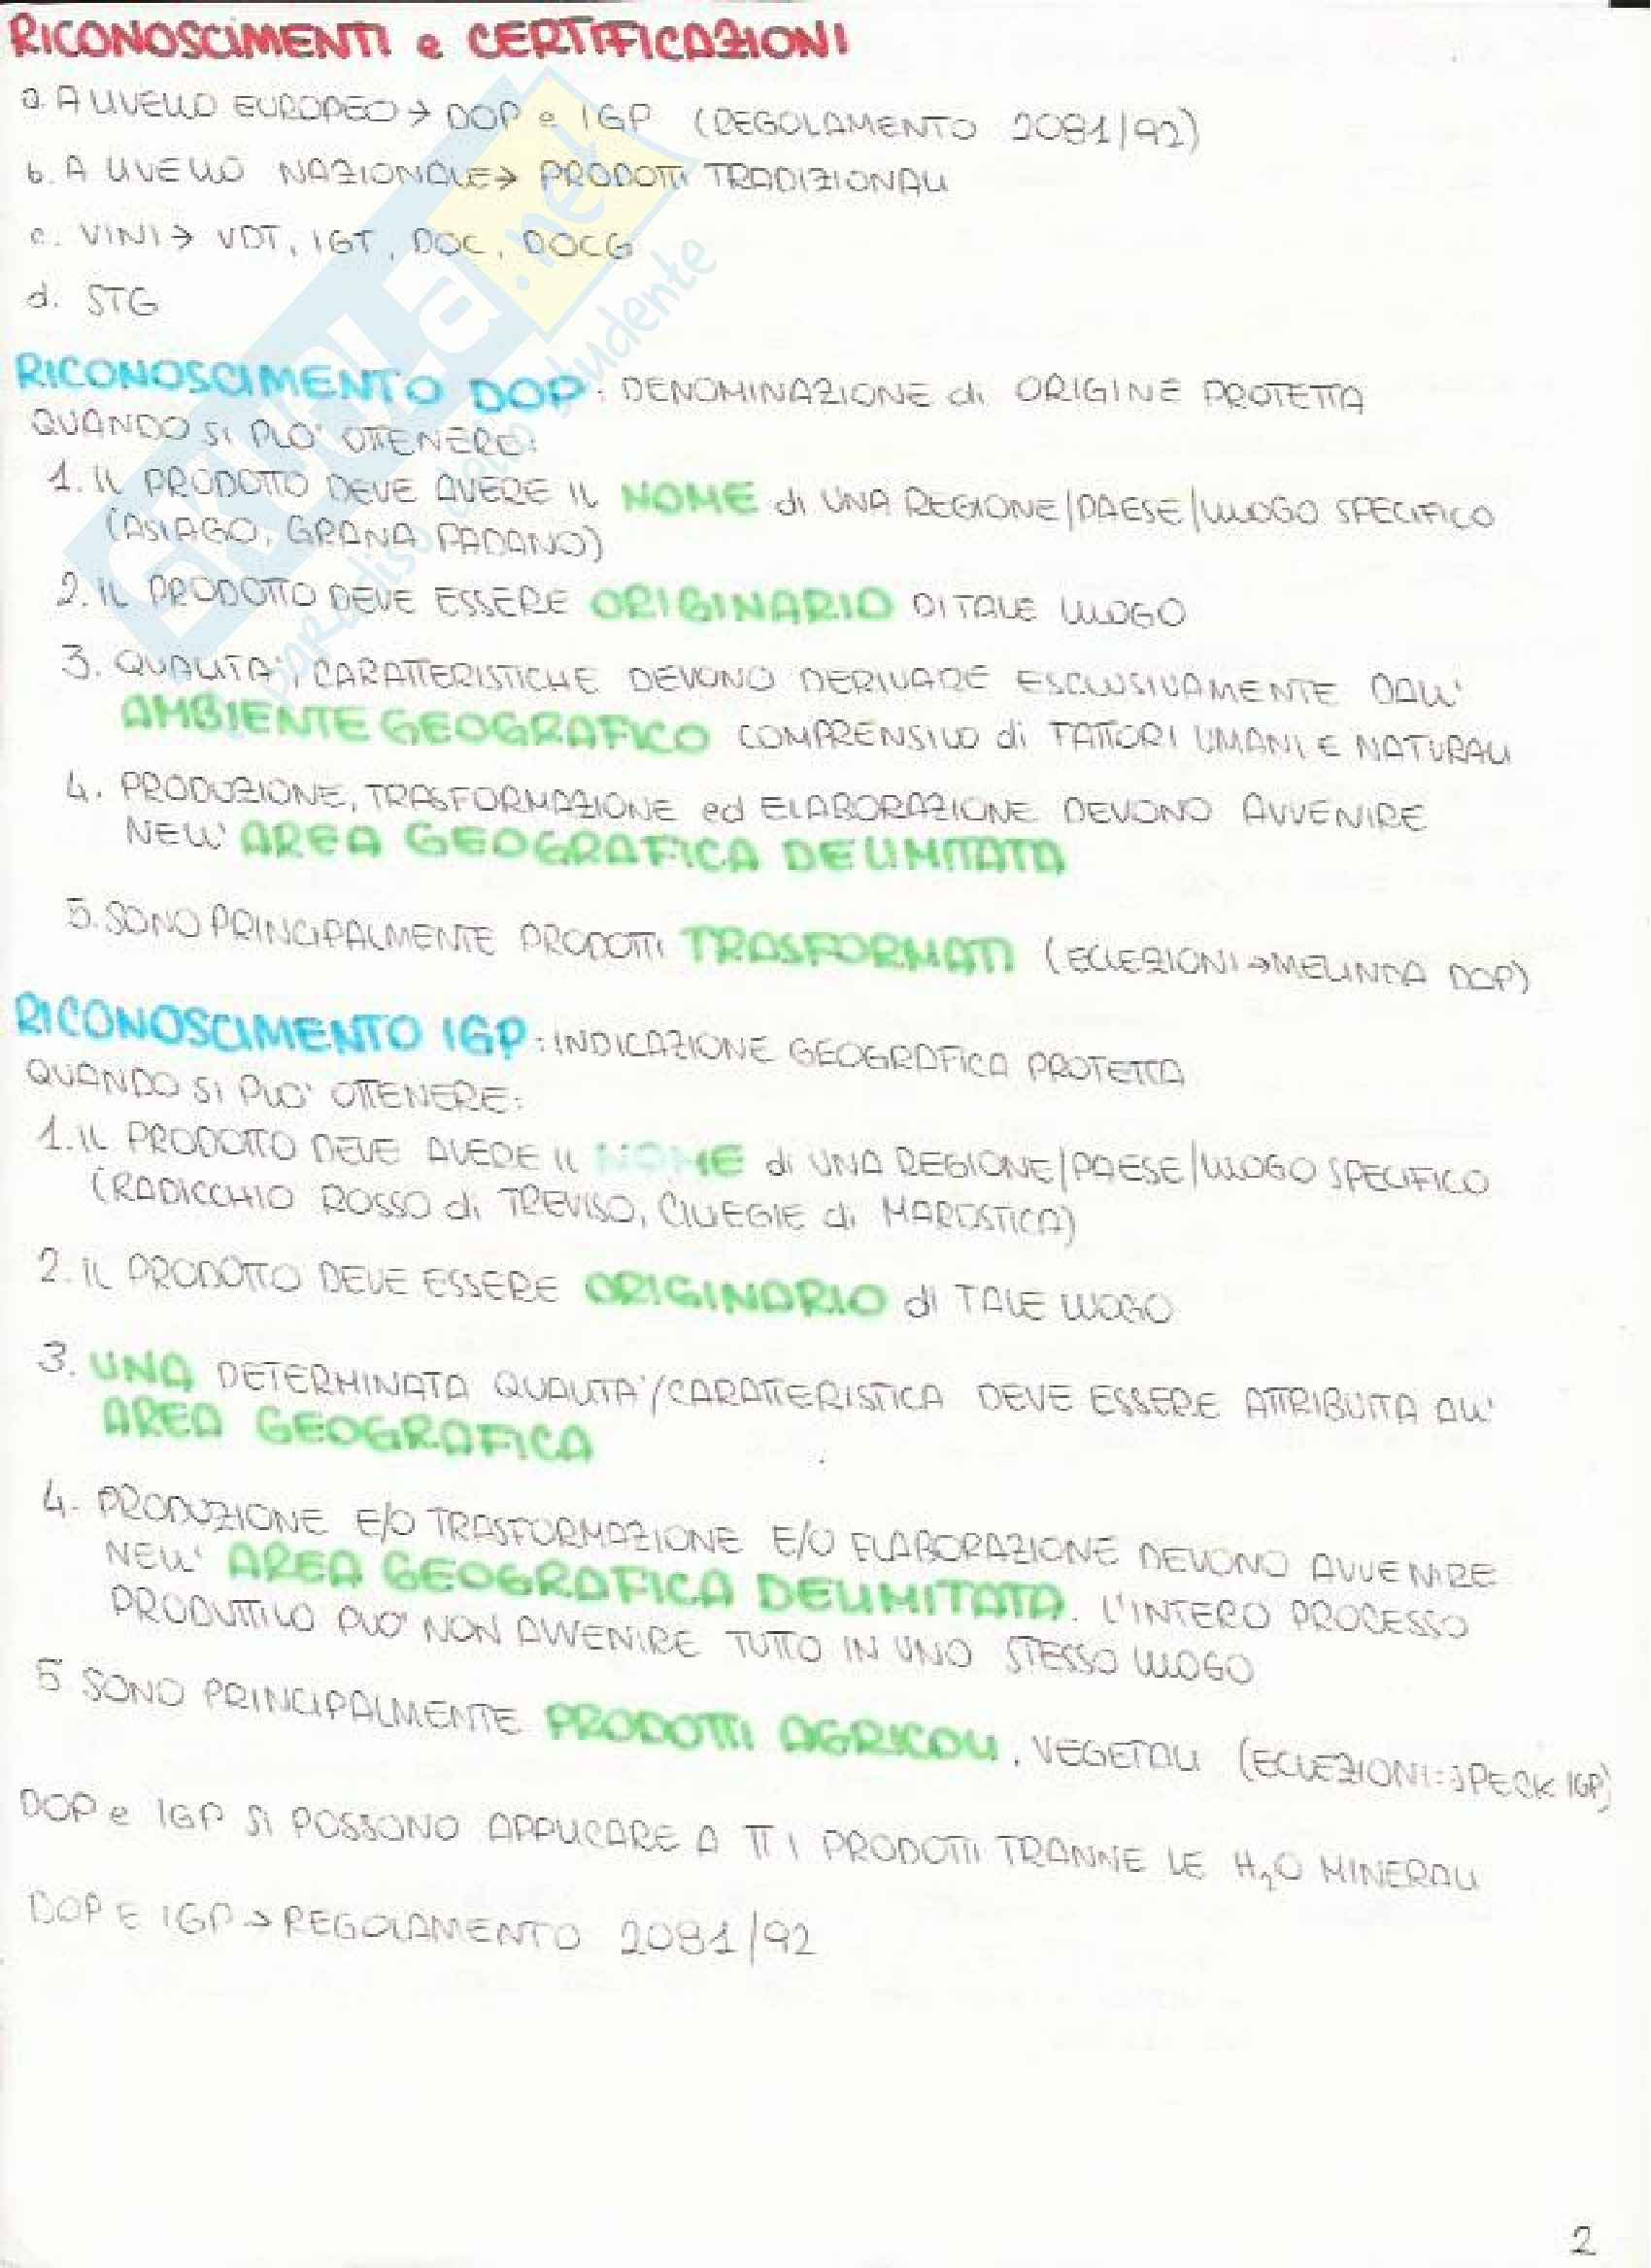 RICONOSCIMENTI e CERTIFICAZIONI
a. A LIVELLO EUROPEO → DOP e IGP (REGOLAMENTO 2081/92)
b. A LIVELLO NAZIONALE → PRODOTTI TRADIZIONALI
c. VINI → VDT, IGT, DOC, DOCG
d. STG
RICONOSCIMENTO DOP: DENOMINAZIONE di ORIGINE PROTETTA
QUANDO SI PUO' OTTENERE:
1. IL PRODOTTO DEVE AVERE IL NOME di UNA REGIONE/PAESE/LUOGO SPECIFICO
(ASIAGO, GRANA PADANO)
2. IL PRODOTTO DEVE ESSERE ORIGINARIO DI TALE LUOGO
3. QUALITA', CARATTERISTICHE DEVONO DERIVARE ESCLUSIVAMENTE DALL'
AMBIENTE GEOGRAFICO COMPRENSIVO di FATTORI UMANI E NATURALI
4. PRODUZIONE, TRASFORMAZIONE ed ELABORAZIONE DEVONO AVVENIRE
NELL' AREA GEOGRAFICA DELIMITATA
5. SONO PRINCIPALMENTE PRODOTTI TRASFORMATI (ECCEZIONI → MELINDA DOP)
RICONOSCIMENTO IGP: INDICAZIONE GEOGRAFICA PROTETTA
QUANDO SI PUO' OTTENERE:
1. IL PRODOTTO DEVE AVERE IL NOME di UNA REGIONE/PAESE/LUOGO SPECIFICO
(RADICCHIO ROSSO di TREVISO, CILIEGIE di MAROSTICA)
2. IL PRODOTTO DEVE ESSERE ORIGINARIO di TALE LUOGO
3. UNA DETERMINATA QUALITA'/CARATTERISTICA DEVE ESSERE ATTRIBUITA ALL'
AREA GEOGRAFICA
4. PRODUZIONE E/O TRASFORMAZIONE E/O ELABORAZIONE DEVONO AVVENIRE
NELL' AREA GEOGRAFICA DELIMITATA. L'INTERO PROCESSO
PRODUTTIVO PUO' NON AVVENIRE TUTTO IN UNO STESSO LUOGO
5 SONO PRINCIPALMENTE PRODOTTI AGRICOLI, VEGETALI (ECCEZIONI: SPECK IGP)
DOP e IGP SI POSSONO APPLICARE A TT I PRODOTTI TRANNE LE H₂O MINERALI
DOP E IGP → REGOLAMENTO 2081/92
2
SKUOLA.net
il paradiso dello studente